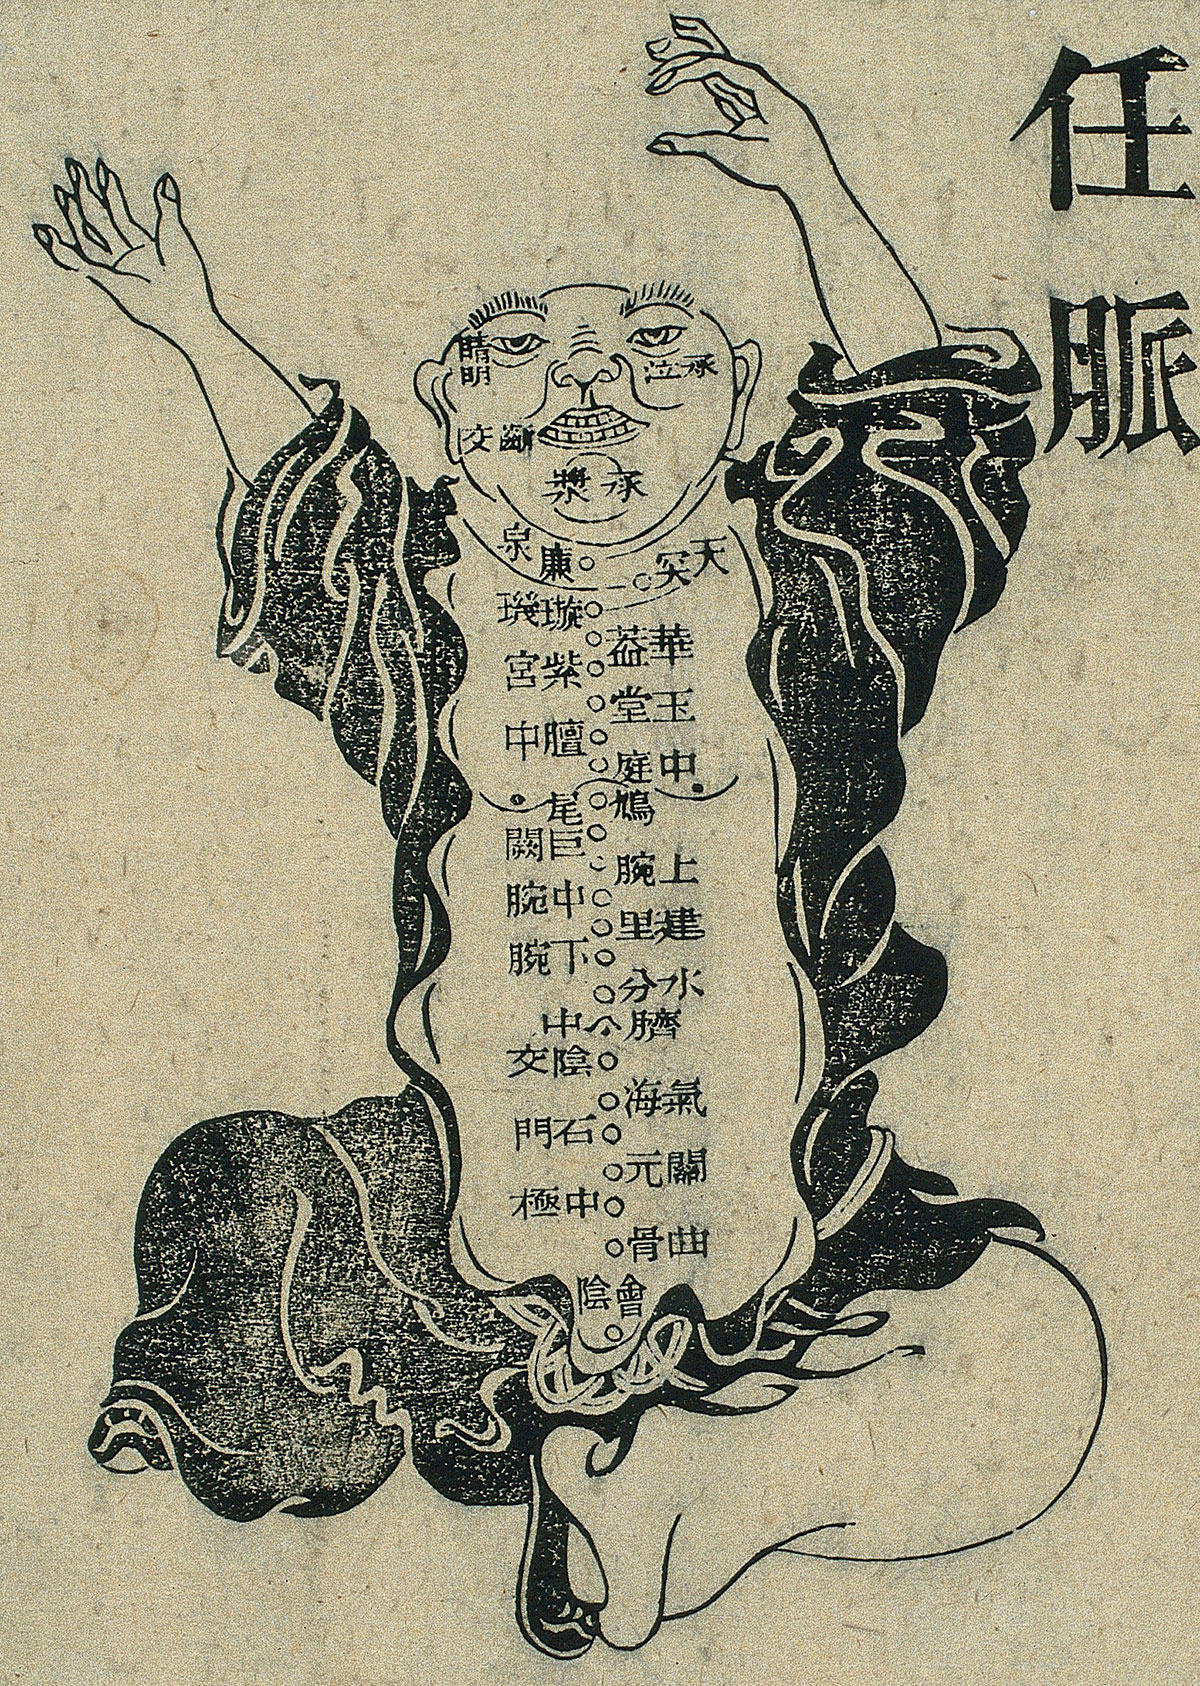 任脈
睛明
承泣
齦交
承漿
廉泉
天突
璇璣
華蓋
紫宮
玉堂
膻中
中庭
鳩尾
巨闕
上腕
中腕
建里
下腕
水分
臍中
陰交
氣海
石門
關元
中極
曲骨
會陰